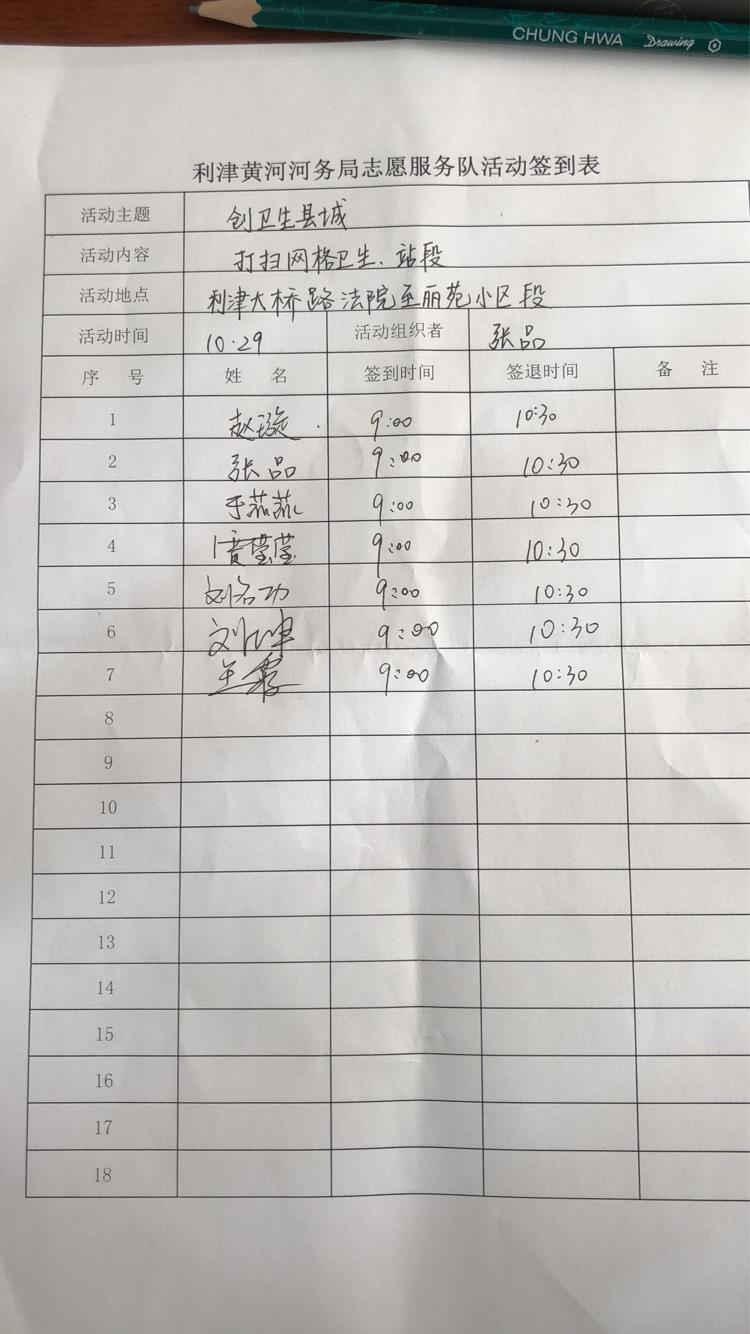 CHUNG HWA Drawing
利津黄河河务局志愿服务队活动签到表
活动主题 创卫生县城
活动内容 打扫网格卫生、站段
活动地点 利津大桥路法院至丽苑小区段
活动时间 10.29 活动组织者 张品
序 号 姓 名 签到时间 签退时间 备 注
1 赵璇 9:00 10:30
2 张品 9:00 10:30
3 于茹茹 9:00 10:30
4 莹莹 9:00 10:30
5 刘名功 9:00 10:30
6 刘坤 9:00 10:30
7 王霞 9:00 10:30
8
9
10
11
12
13
14
15
16
17
18